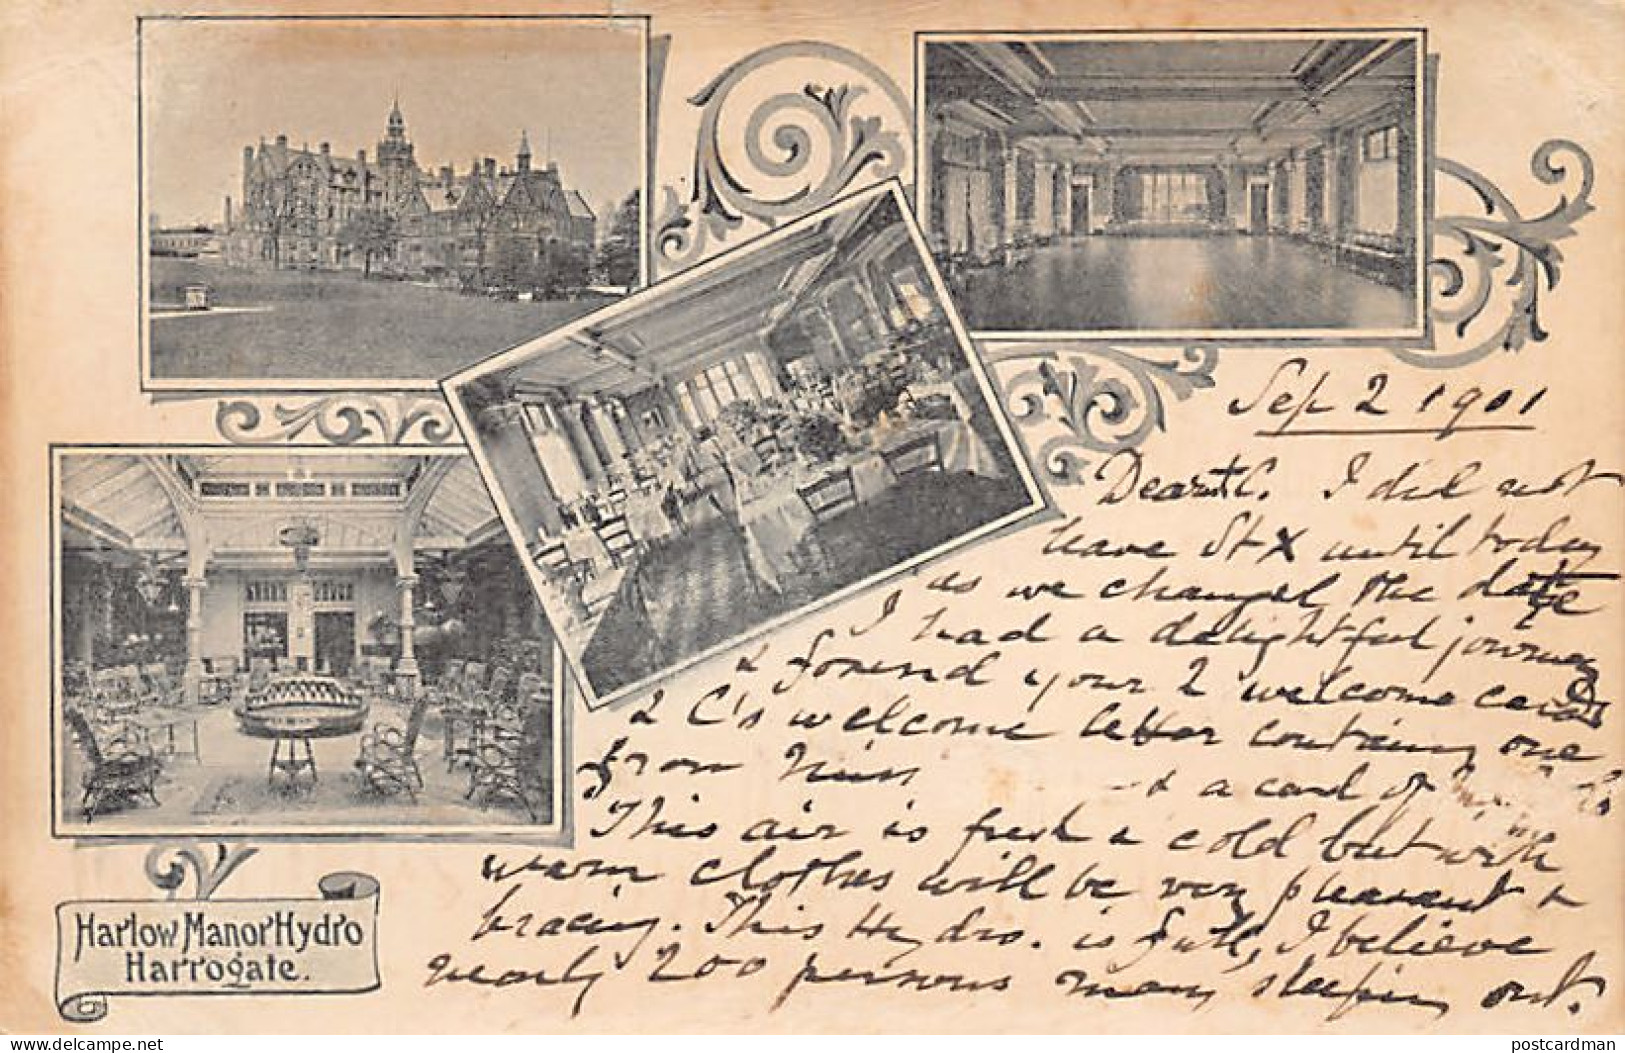 Sep 2 1901
Dearest C. I did not
leave St X until today
as we changed the date
I had a delightful journey
& found your 2 welcome cards
& C's welcome letter containing one
from
& a card of
This air is fresh & cold but with
warm clothes will be very pleasant &
bracing. This Hydro. is full, I believe
nearly 200 persons many sleeping out.
Harlow Manor Hydro
Harrogate.
delcampe.net
postcardman